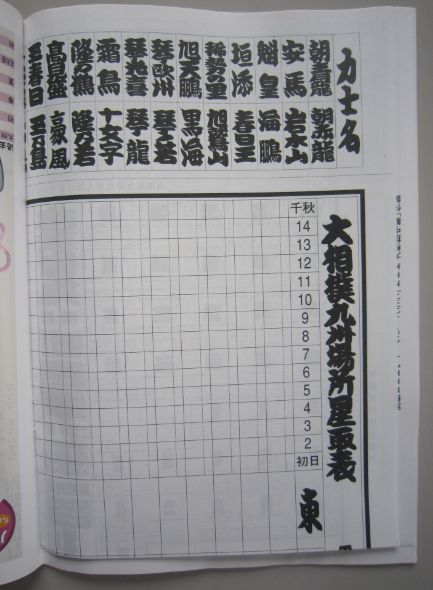 力士名
朝青龍 朝赤龍
安馬 岩木山
魁皇 海鵬
垣添 春日王
稀勢の里 旭鷲山
旭天鵬 黒海
琴欧州 琴ノ若
琴光喜 琴龍
霜鳥 十文字
隆の鶴 隆乃若
高見盛 豪風
玉春日 玉乃島
大相撲九州場所星取表
千秋
14
13
12
11
10
9
8
7
6
5
4
3
2
初日
東